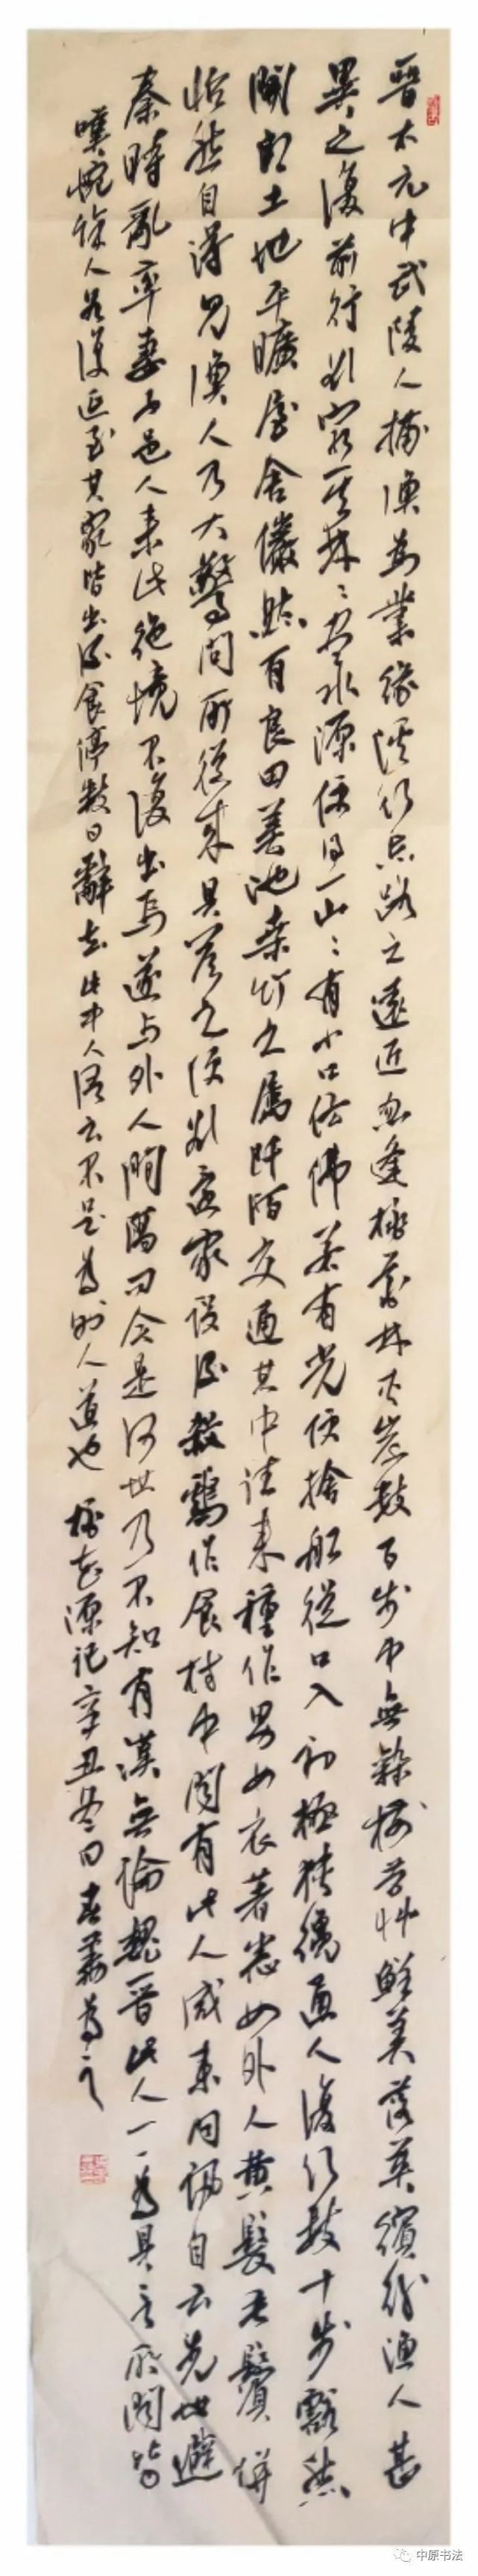 晉太元中武陵人捕漁為業緣溪行忘路之遠近忽逢桃花林夾岸數百步中無雜樹芳艸鮮美落英繽紛漁人甚
異之復前行欲窮其林〻盡水源便得一山〻有小口彷彿若有光便捨船從口入初極狹纔通人復行數十步豁然
開朗土地平曠屋舍儼然有良田美池桑竹之屬阡陌交通其中往來種作男女衣著悉如外人黃髮垂鬢併
怡然自得見漁人乃大驚問所從來具答之便欲還家設酒殺雞作食村中聞有此人咸來問訊自云先世避
秦時亂率妻子邑人來此絕境不復出焉遂與外人間隔問今是何世乃不知有漢無論魏晉此人一一為具言所聞皆
嘆惋餘人各復延至其家皆出酒食停數日辭去此中人語云不足為外人道也 桃花源記辛丑冬日
中原书法